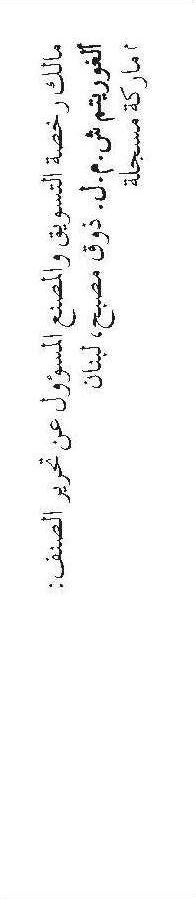 مالك رخصة التسويق والمصنع المسؤول عن تحرير الصنف:
ألغوريتم ش.م.ل. ذوق مصبح، لبنان
ماركة مسجلة